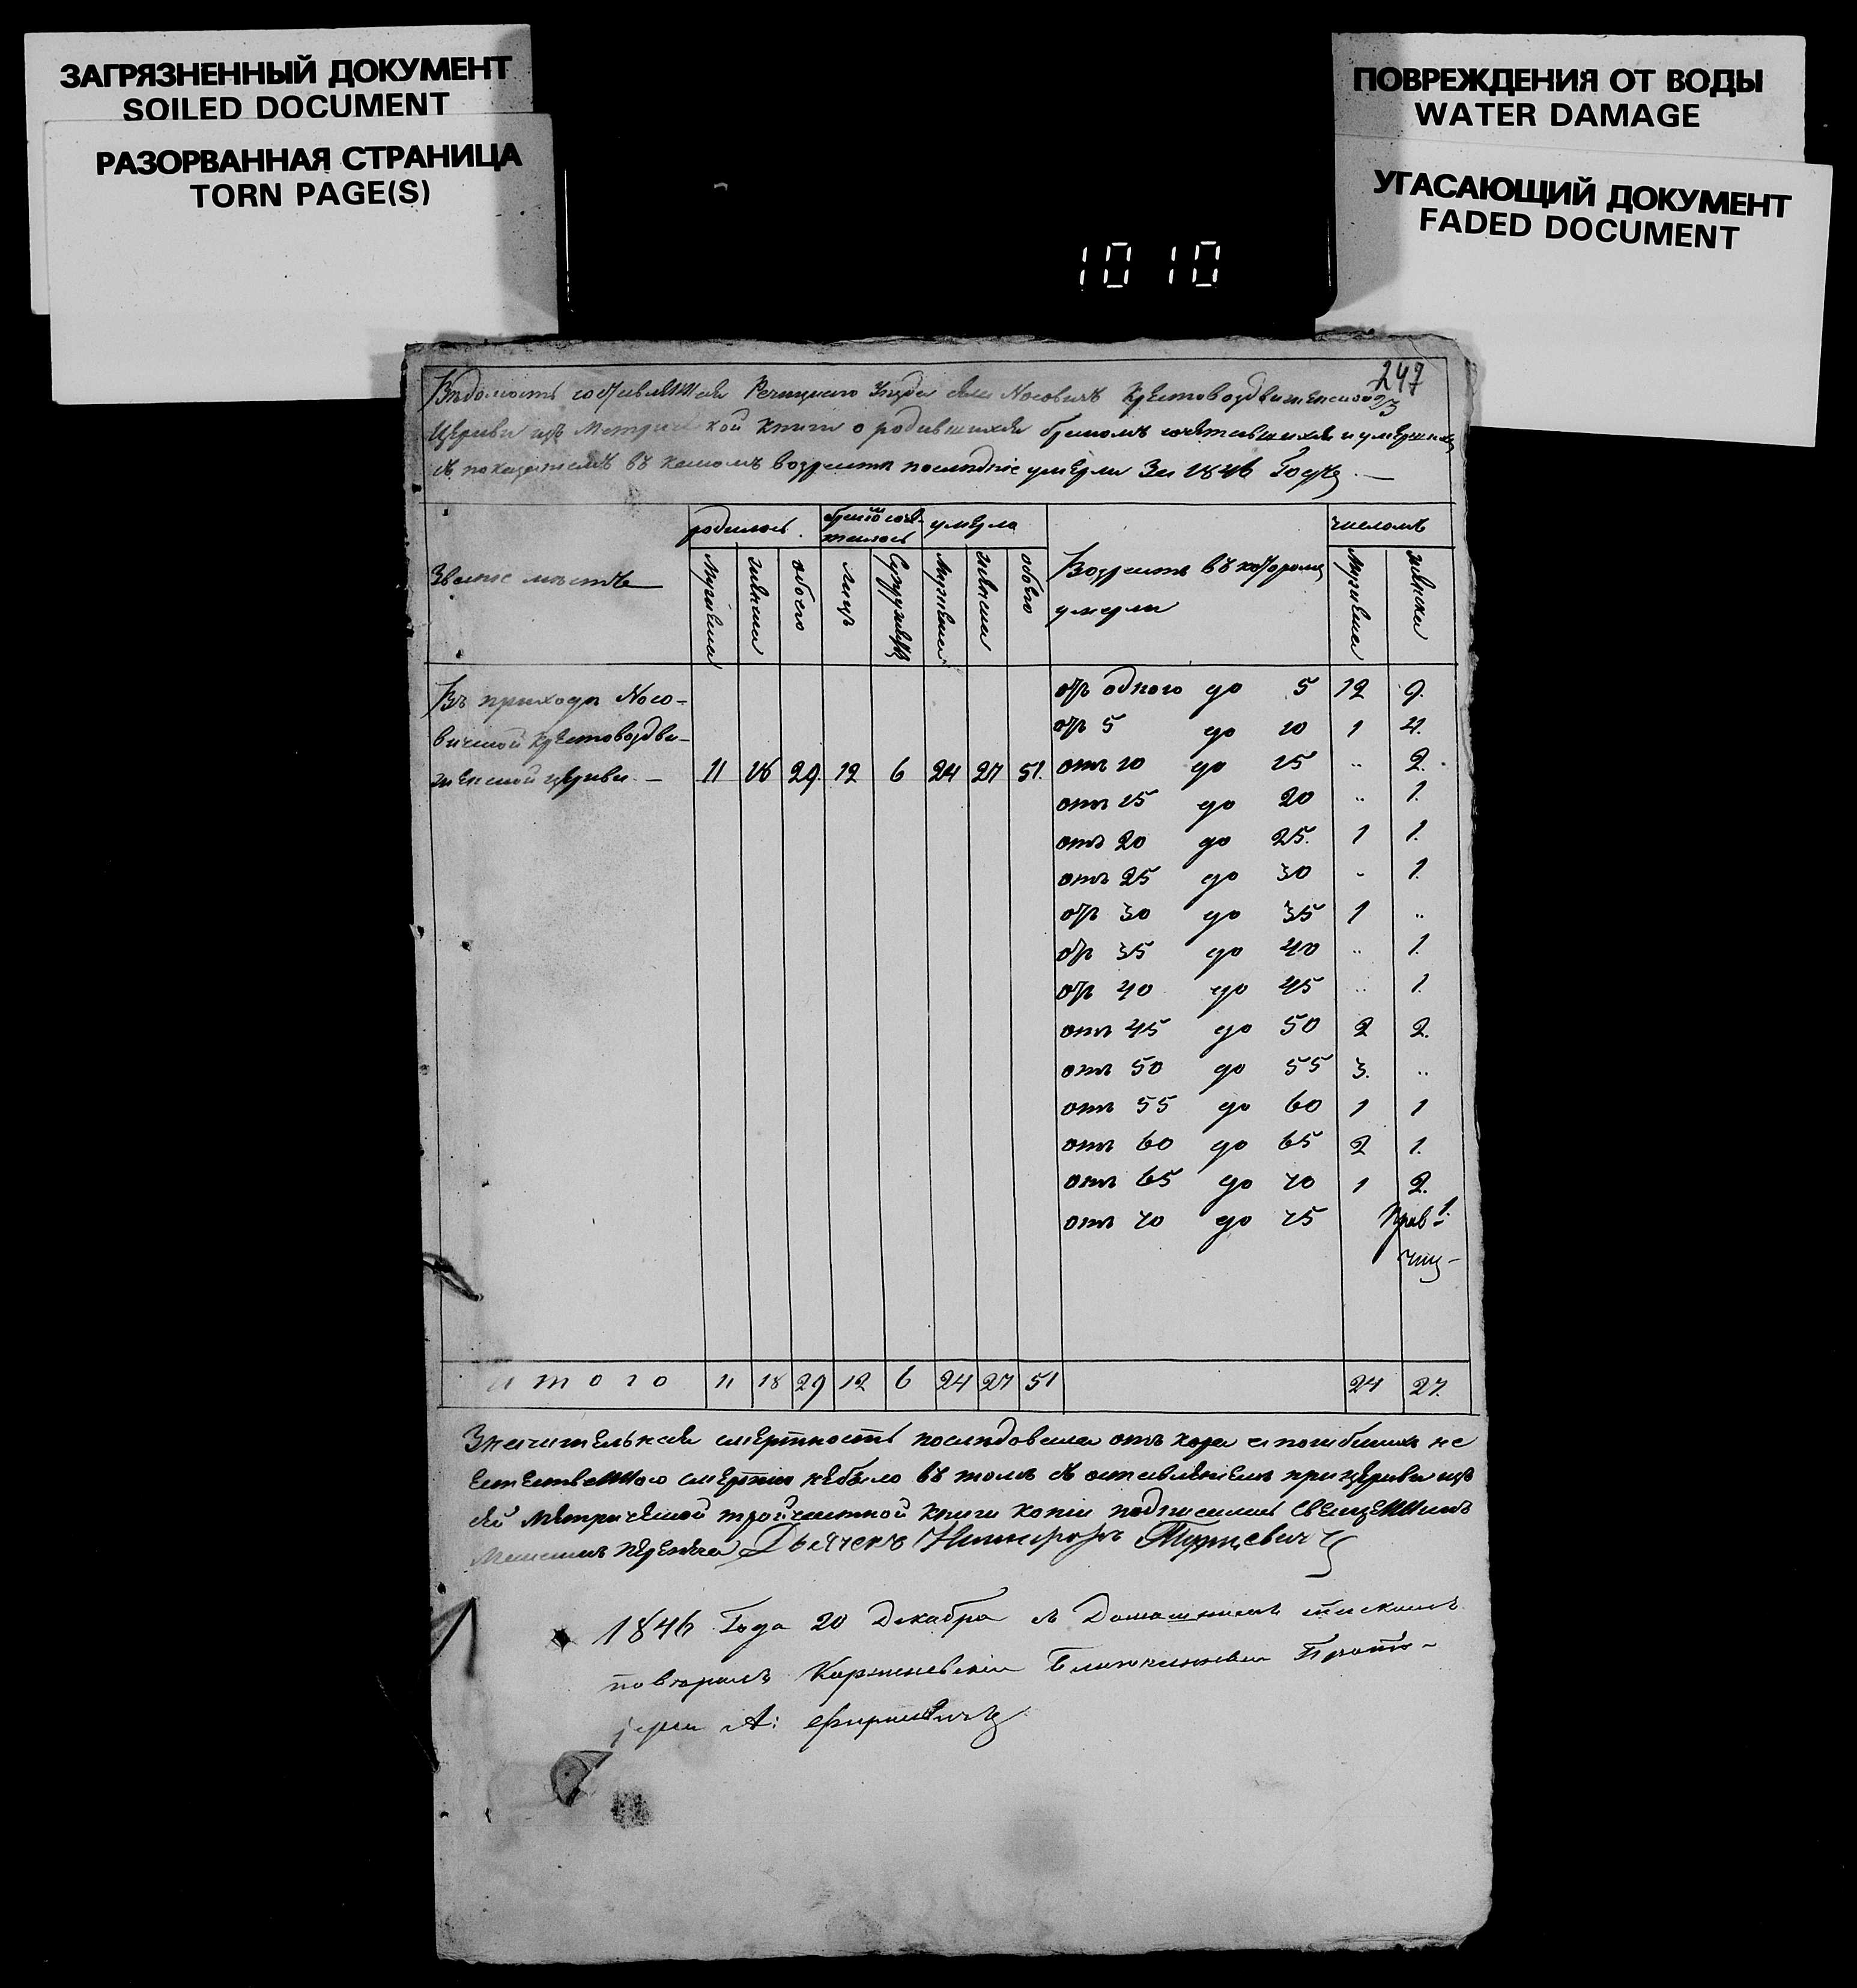 ЗАГРЯЗНЕННЫЙ ДОКУМЕНТ
SOILED DOCUMENT
РАЗОРВАННАЯ СТРАНИЦА
TORN PAGE(S)
ПОВРЕЖДЕНИЯ ОТ ВОДЫ
WATER DAMAGE
УГАСАЮЩИЙ ДОКУМЕНТ
FADED DOCUMENT
10 10
247
23
Вѣдомость составленная Речицкаго Уѣзда села Носовичъ Крестовоздвиженской
Церкви изъ Метрической книги о родившихся бракомъ сочетавшихся и умершихъ
съ показаніемъ въ какомъ возрастѣ послѣдніе умерли За 1846 Годъ
Званіе мѣстъ
родилось
бракомъ соче-
талось
умерло
Возрастъ въ которомъ
умерли
числомъ
Мужеска
женска
обоего
лицъ
Супружествъ
Мужеска
женска
обоего
Мужеска
женска
Въ приходѣ Носо-
вичской Крестовоздви-
женской церкви — 11 18 29. 12 6 24 27 51.
отъ одного до 5 12 9.
отъ 5 до 10 1 4.
отъ 10 до 15 .. 2.
отъ 15 до 20 .. 1.
отъ 20 до 25. 1 1.
отъ 25 до 30 - 1.
отъ 30 до 35 1 ..
отъ 35 до 40 .. 1.
отъ 40 до 45 .. 1.
отъ 45 до 50 2 2.
отъ 50 до 55 3. ..
отъ 55 до 60 1 1
отъ 60 до 65 2 1.
отъ 65 до 70 1 2.
отъ 70 до 75 1.
итого 11 18 29 12 6 24 27 51 24 27.
Значительная смертность послѣдовала отъ кора а погибшихъ не
естественною смертію небыло въ томъ съ оставленіемъ при церкви изъ
сей Метрической тройчастной книги копіи подписались Священникъ
Дьячекъ Никифоръ
1846 Года 20 Декабря съ Домашнимъ спискомъ
повѣрялъ Благочинный Прото-
іерей А: